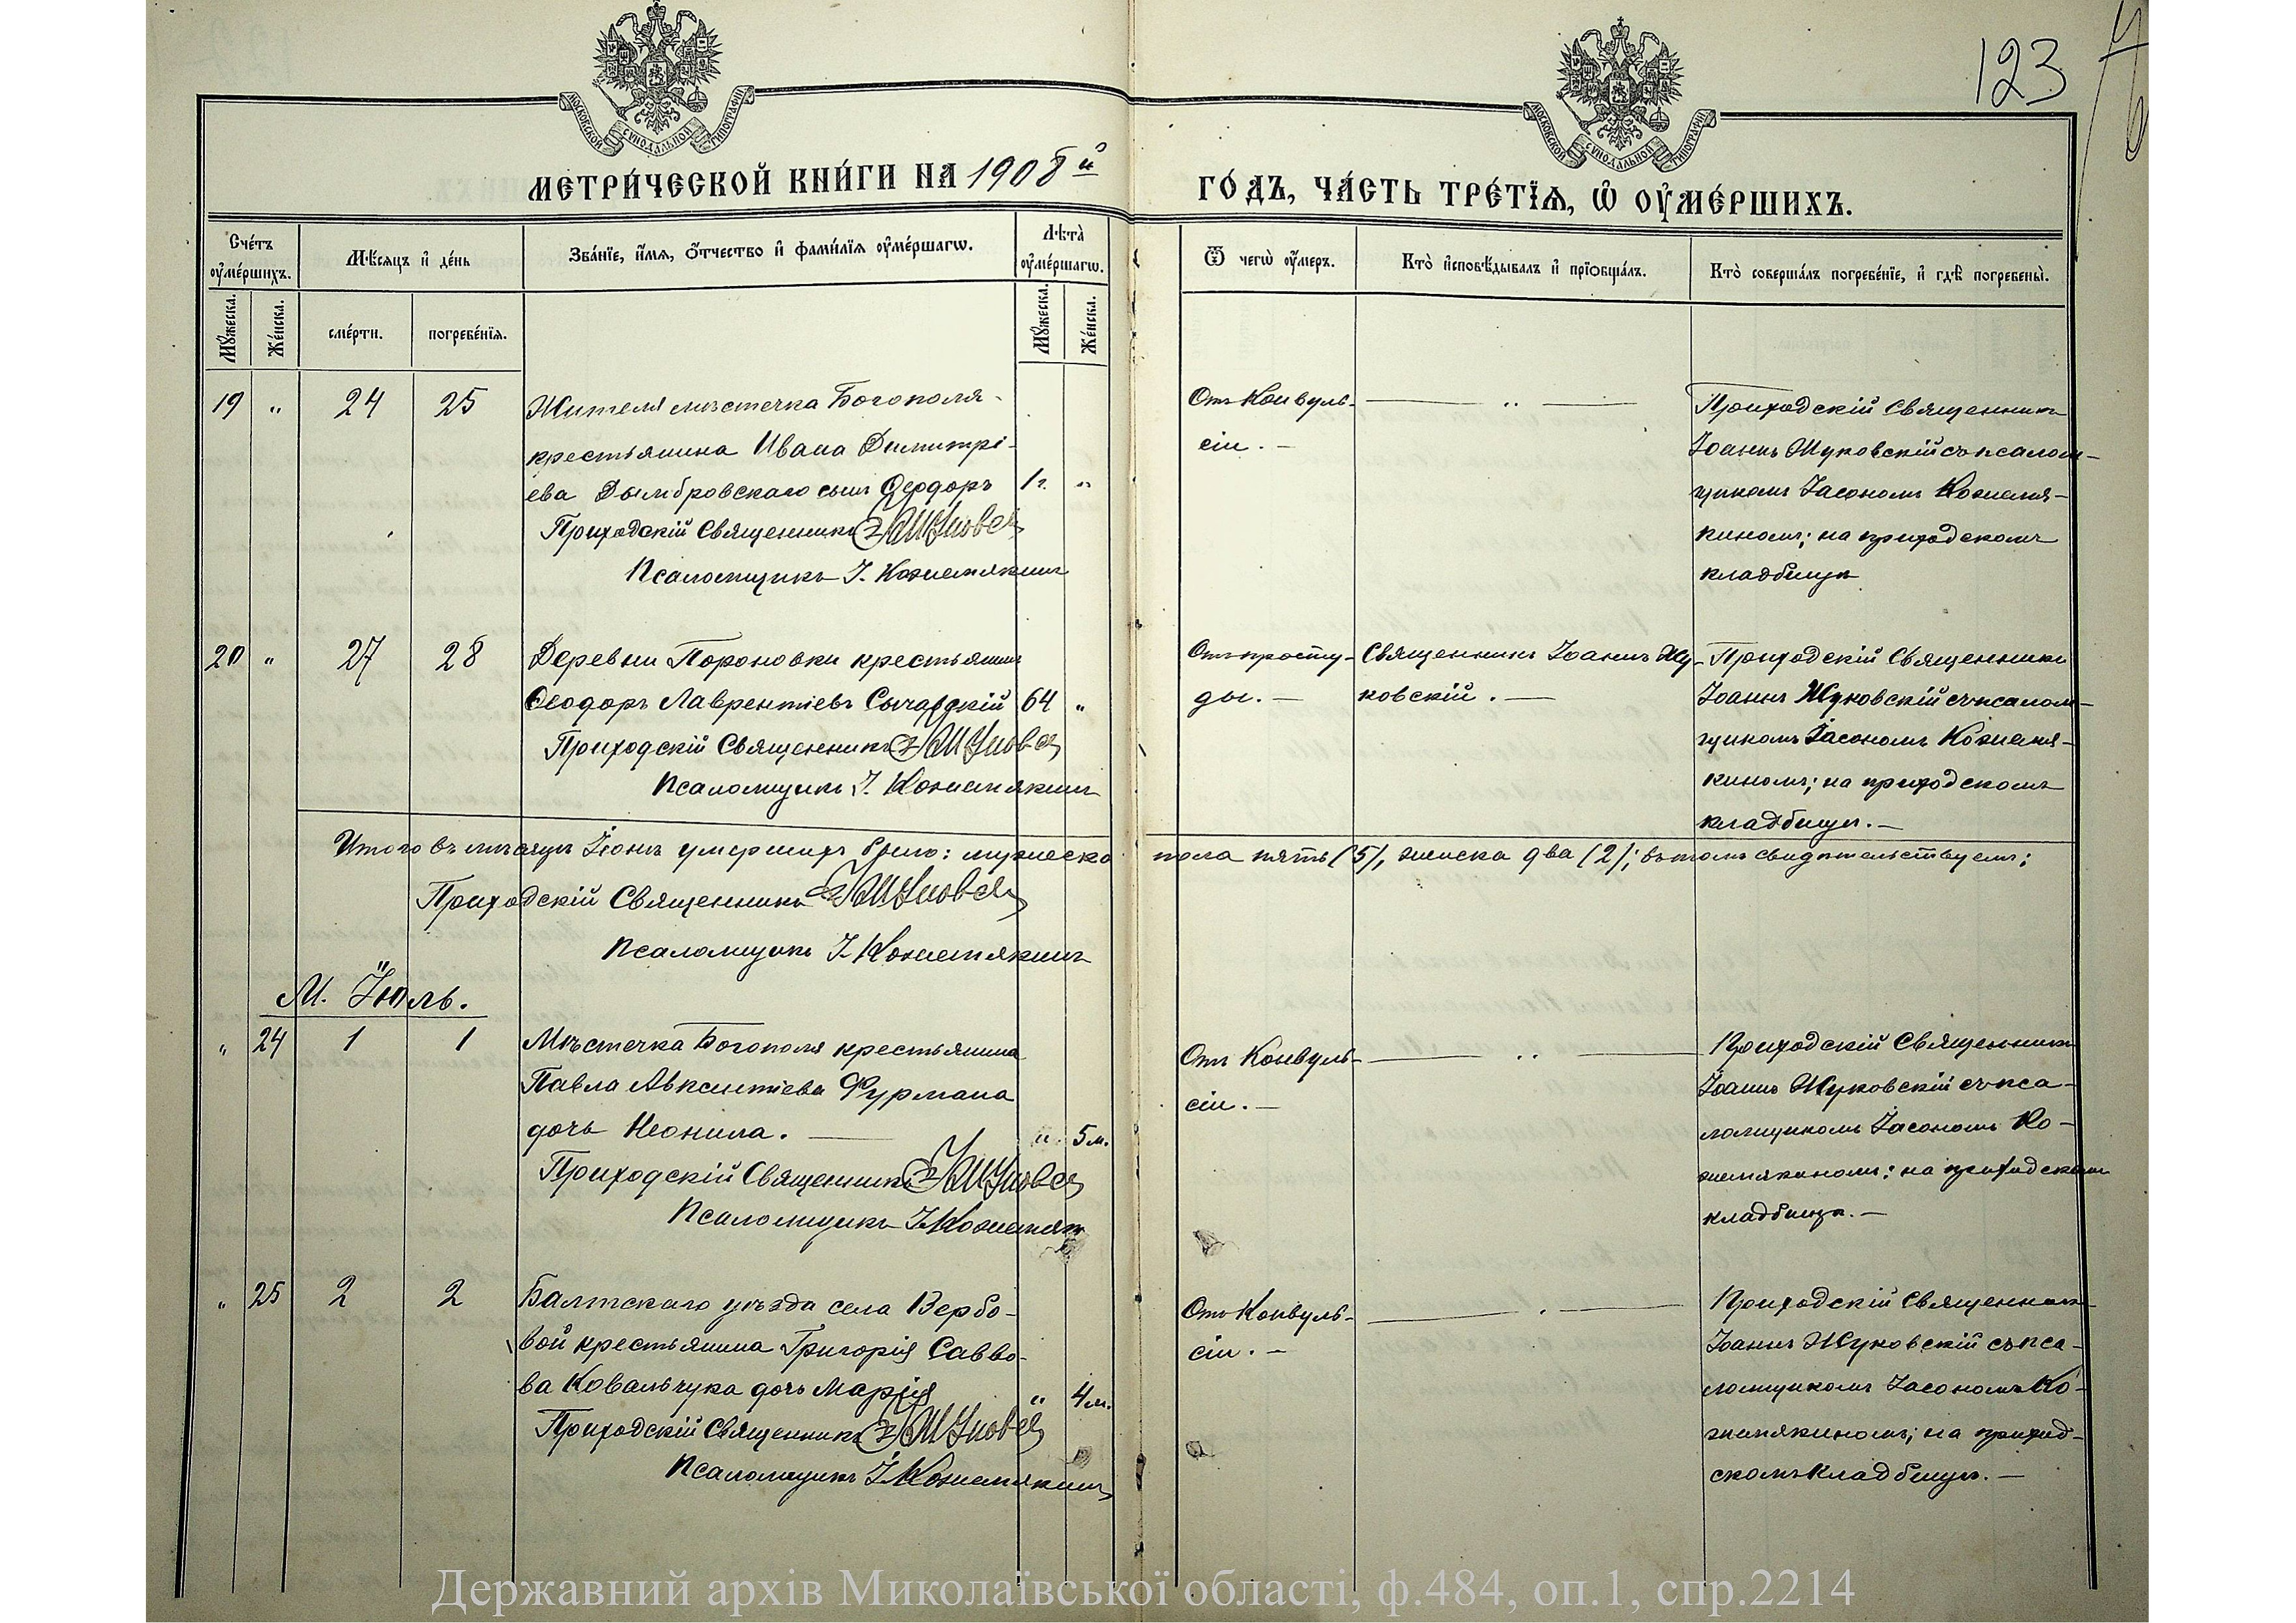 123
МОСКОВСКОЙ СѴНОДАЛЬНОЙ ТИПОГРАФІИ
МОСКОВСКОЙ СѴНОДАЛЬНОЙ ТИПОГРАФІИ
МЕТРИ́ЧЕСКОЙ КНИ́ГИ НА 1908й ГО́ДЪ, ЧА́СТЬ ТРЕ́ТЇѦ, Ѽ ОУ҆МЕ́РШИХЪ.
Сче́тъ оу҆ме́ршихъ.
Мꙋ́жеска.
Же́нска.
Мѣ́сяцъ и҆ де́нь
сме́рти.
погребе́нїѧ.
Зва́нїе, и҆́мѧ, ѻ҆́тчество и҆ фами́лїѧ оу҆ме́ршагѡ.
Лѣта̀ оу҆ме́ршагѡ.
Мꙋ́жеска.
Же́нска.
Ѿ чегѡ̀ оу҆́меръ.
Кто̀ и҆сповѣ́дывалъ и҆ прїѡбща́лъ.
Кто̀ соверша́лъ погребе́нїе, и҆ гдѣ̀ погребены̀.
19 " 24 25
Жителя мѣстечка Богополя
крестьянина Ивана Димитрі-
ева Дымбровскаго сынъ Ѳеодоръ 1 г. "
Приходскій Священникъ
Псаломщикъ І. Кожемякинъ
Отъ Конвуль-
сіи. —
— " —
Приходскій Священникъ
Іоаннъ Жуковскій съ псалом-
щикомъ Іасономъ Кожемя-
кинымъ; на приходскомъ
кладбищѣ
20 " 27 28
Деревни крестьянинъ
Ѳеодоръ Лаврентіевъ 64 "
Приходскій Священникъ
Псаломщикъ І. Кожемякинъ
Отъ просту-
ды. —
Священникъ Іоаннъ Жу-
ковскій. —
Приходскій Священникъ
Іоаннъ Жуковскій съ псалом-
щикомъ Іасономъ Кожемя-
кинымъ; на приходскомъ
кладбищѣ. —
Итого въ мѣсяцѣ Іюнѣ умершихъ было: мужеска пола пять (5), женска два (2); въ томъ свидѣтельствуемъ:
Приходскій Священникъ
Псаломщикъ І. Кожемякинъ
М. Іюль.
" 24 1 1
Мѣстечка Богополя крестьянина
Павла Авксентіева Фурмана
дочь Неонила. — " 5 м.
Приходскій Священникъ
Псаломщикъ І. Кожемякинъ
Отъ Конвуль-
сіи. —
— " —
Приходскій Священникъ
Іоаннъ Жуковскій съ пса-
ломщикомъ Іасономъ Ко-
жемякинымъ; на приходскомъ
кладбищѣ. —
" 25 2 2
Балтскаго уѣзда села Вербо-
вой крестьянина Григорія Савво-
ва Ковальчука дочь Марія " 4 м.
Приходскій Священникъ
Псаломщикъ І. Кожемякинъ
Отъ Конвуль-
сіи. —
Приходскій Священникъ
Іоаннъ Жуковскій съ пса-
ломщикомъ Іасономъ Ко-
жемякинымъ; на приход-
скомъ кладбищѣ. —
Державний архів Миколаївської області, ф.484, оп.1, спр.2214